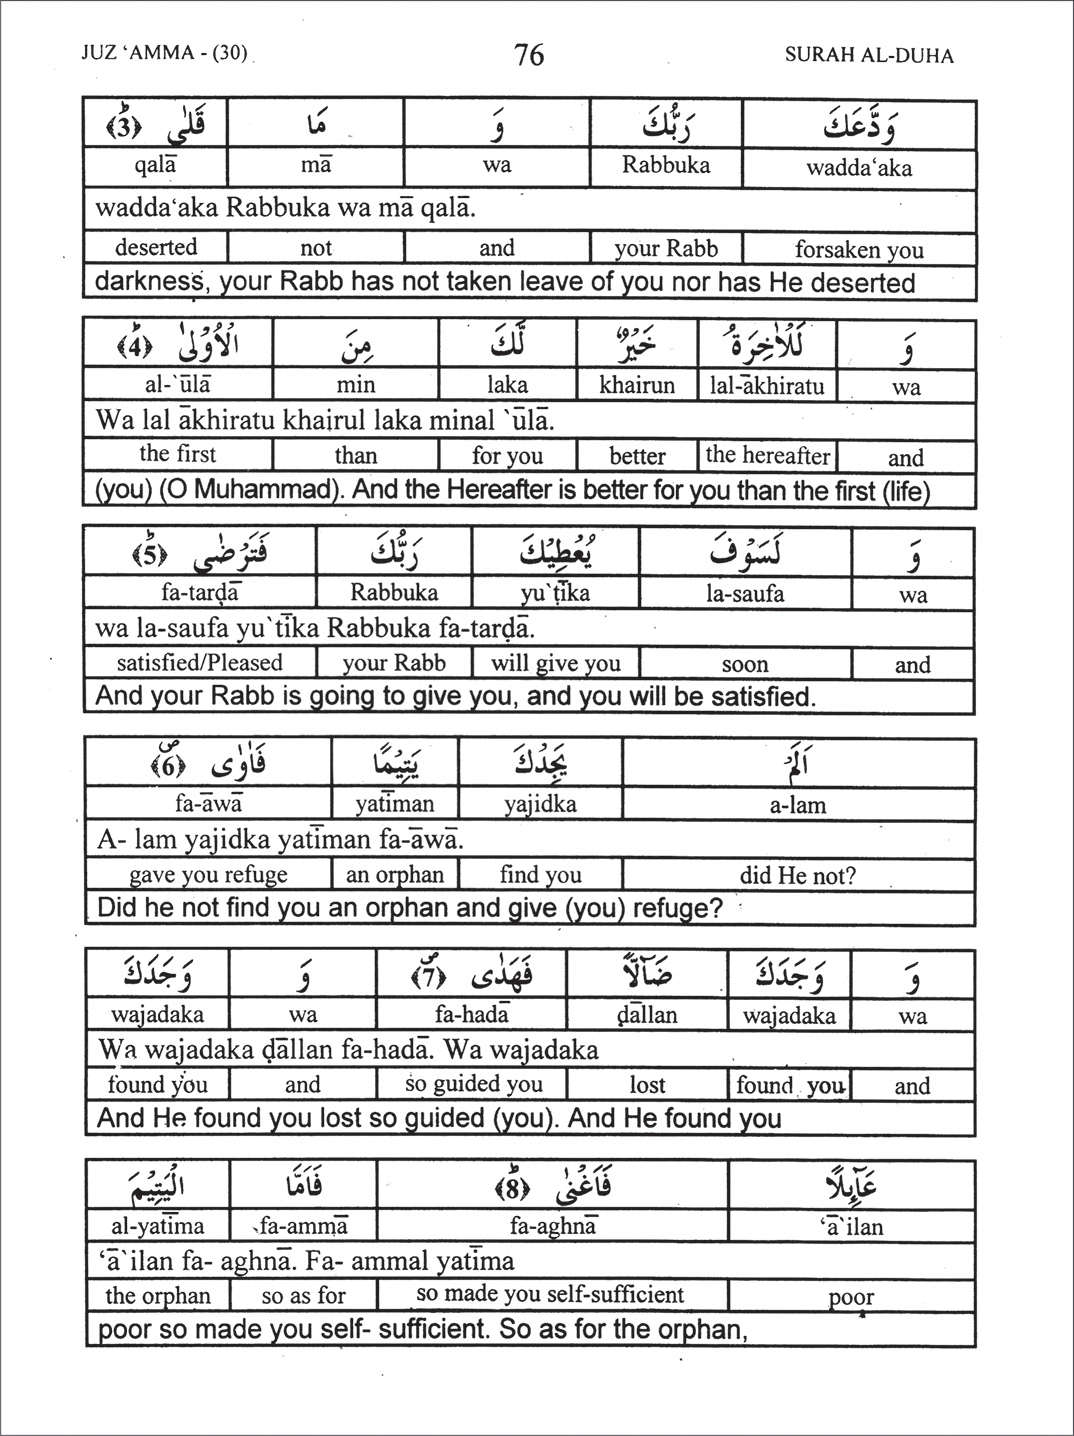 JUZ ‘AMMA - (30) 76 SURAH AL-DUHA
وَدَّعَكَ رَبُّكَ وَ مَا قَلٰى ﴿3﴾ ؕ
qalā mā wa Rabbuka wadda‘aka
wadda‘aka Rabbuka wa mā qalā.
deserted not and your Rabb forsaken you
darkness, your Rabb has not taken leave of you nor has He deserted
وَ لَلْاٰخِرَةُ خَيْرٌ لَّكَ مِنَ الْاُوْلٰى ﴿4﴾ ؕ
al-`ūlā min laka khairun lal-ākhiratu wa
Wa lal ākhiratu khairul laka minal `ūlā.
the first than for you better the hereafter and
(you) (O Muhammad). And the Hereafter is better for you than the first (life)
وَ لَسَوْفَ يُعْطِيْكَ رَبُّكَ فَتَرْضٰى ﴿5﴾ ؕ
fa-tarḍā Rabbuka yu`ṭīka la-saufa wa
wa la-saufa yu`ṭīka Rabbuka fa-tarḍā.
satisfied/Pleased your Rabb will give you soon and
And your Rabb is going to give you, and you will be satisfied.
اَلَمْ يَجِدْكَ يَتِيْمًا فَاٰوٰى ﴿6﴾ ۪
fa-āwā yatīman yajidka a-lam
A- lam yajidka yatīman fa-āwā.
gave you refuge an orphan find you did He not?
Did he not find you an orphan and give (you) refuge?
وَ وَجَدَكَ ضَآلًّا فَهَدٰى ﴿7﴾ ۪ وَ وَجَدَكَ
wajadaka wa fa-hadā ḍāllan wajadaka wa
Wa wajadaka ḍāllan fa-hadā. Wa wajadaka
found you and so guided you lost found you and
And He found you lost so guided (you). And He found you
عَآىِٕلًا فَاَغْنٰى ﴿8﴾ ؕ فَاَمَّا الْيَتِيْمَ
al-yatīma fa-ammā fa-aghnā ‘ā`ilan
‘ā`ilan fa- aghnā. Fa- ammal yatīma
the orphan so as for so made you self-sufficient poor
poor so made you self- sufficient. So as for the orphan,